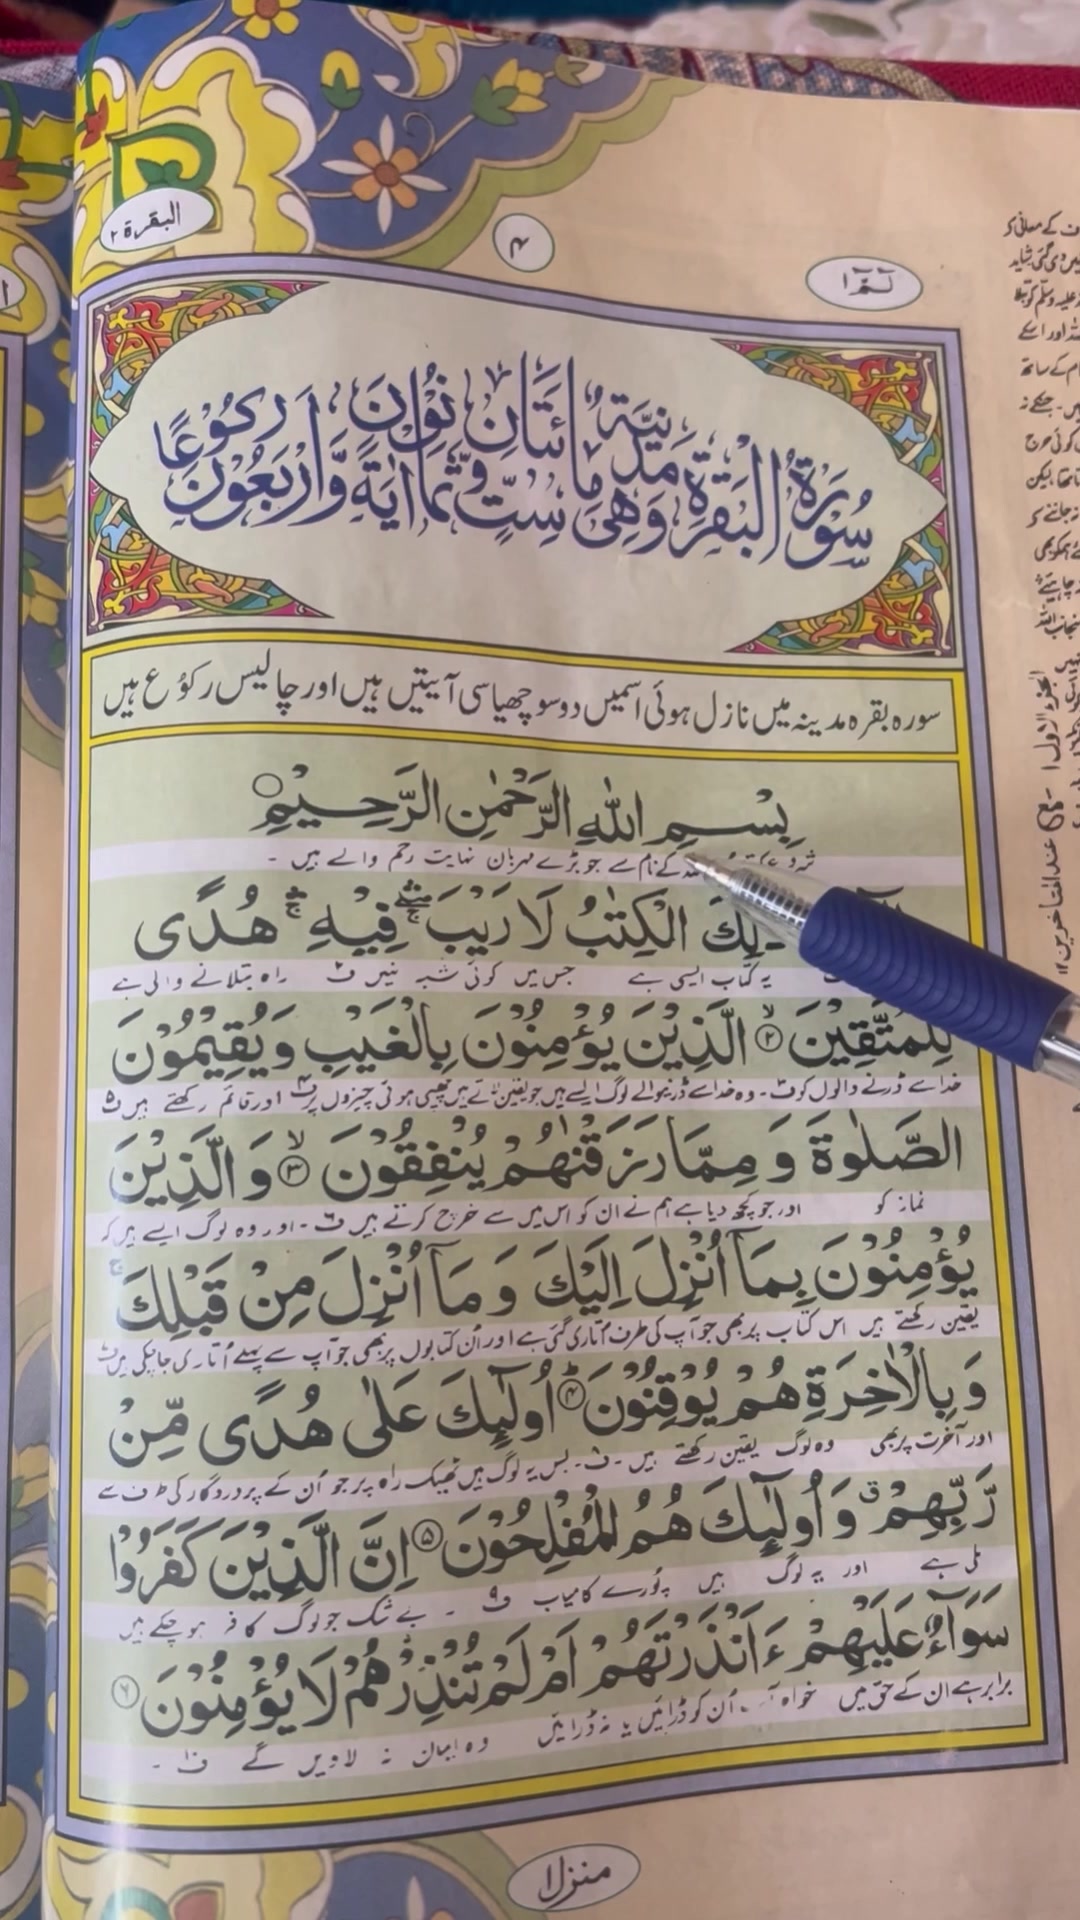 البقرة ٢
۴
الٓمّٓ ١
سُوْرَةُ الْبَقَرَةِ مَدَنِيَّةٌ وَّهِيَ مِائَتَانِ وَسِتٌّ وَّثَمَانُوْنَ اٰيَةً وَّاَرْبَعُوْنَ رُكُوْعًا
سورہ بقرہ مدینہ میں نازل ہوئی اسمیں دوسو چھیاسی آیتیں ہیں اور چالیس رکوع ہیں
بِسْمِ اللهِ الرَّحْمٰنِ الرَّحِيْمِ
کے نام سے جو بڑے مہربان نہایت رحم والے ہیں ۔
الْكِتٰبُ لَا رَيْبَ ۛ فِيْهِ ۛ هُدًى
یہ کتاب ایسی ہے جس میں کوئی شبہ نہیں ف راہ بتلانے والی ہے
لِّلْمُتَّقِيْنَ ۙ﴿۲﴾ الَّذِيْنَ يُؤْمِنُوْنَ بِالْغَيْبِ وَيُقِيْمُوْنَ
خداسے ڈرنے والوں کو ف ۔ وہ خداسے ڈرنیوالے لوگ ایسے ہیں جو یقین لاتے ہیں چھپی ہوئی چیزوں پر ف اور قائم رکھتے ہیں ف
الصَّلٰوةَ وَ مِمَّا رَزَقْنٰهُمْ يُنْفِقُوْنَ ۙ﴿۳﴾ وَ الَّذِيْنَ
نماز کو اور جو کچھ دیا ہے ہم نے ان کو اس میں سے خرچ کرتے ہیں ف ۔ اور وہ لوگ ایسے ہیں کہ
يُؤْمِنُوْنَ بِمَآ اُنْزِلَ اِلَيْكَ وَ مَآ اُنْزِلَ مِنْ قَبْلِكَ ۚ
یقین رکھتے ہیں اس کتاب پر بھی جو آپ کی طرف اُتاری گئی ہے اور اُن کتابوں پر بھی جو آپ سے پہلے اُتاری جاچکی ہیں
وَ بِالْاٰخِرَةِ هُمْ يُوْقِنُوْنَ ؕ﴿۴﴾ اُولٰٓئِكَ عَلٰى هُدًى مِّنْ
اور آخرت پر بھی وہ لوگ یقین رکھتے ہیں ۔ ف ۔ بس یہ لوگ ہیں ٹھیک راہ پر جو اُن کے پروردگار کی طرف سے
رَّبِّهِمْ ۗ وَ اُولٰٓئِكَ هُمُ الْمُفْلِحُوْنَ ﴿۵﴾ اِنَّ الَّذِيْنَ كَفَرُوْا
ملی ہے اور یہ لوگ ہیں پُورے کامیاب ف۹ ۔ بے شک جو لوگ کافر ہو چکے ہیں
سَوَآءٌ عَلَيْهِمْ ءَاَنْذَرْتَهُمْ اَمْ لَمْ تُنْذِرْهُمْ لَا يُؤْمِنُوْنَ ﴿۶﴾
برابر ہے ان کے حق میں خواہ اُن کو ڈرائیں یا نہ ڈرائیں وہ ایمان نہ لاویں گے ف۱۰ ۔
منزل ۱